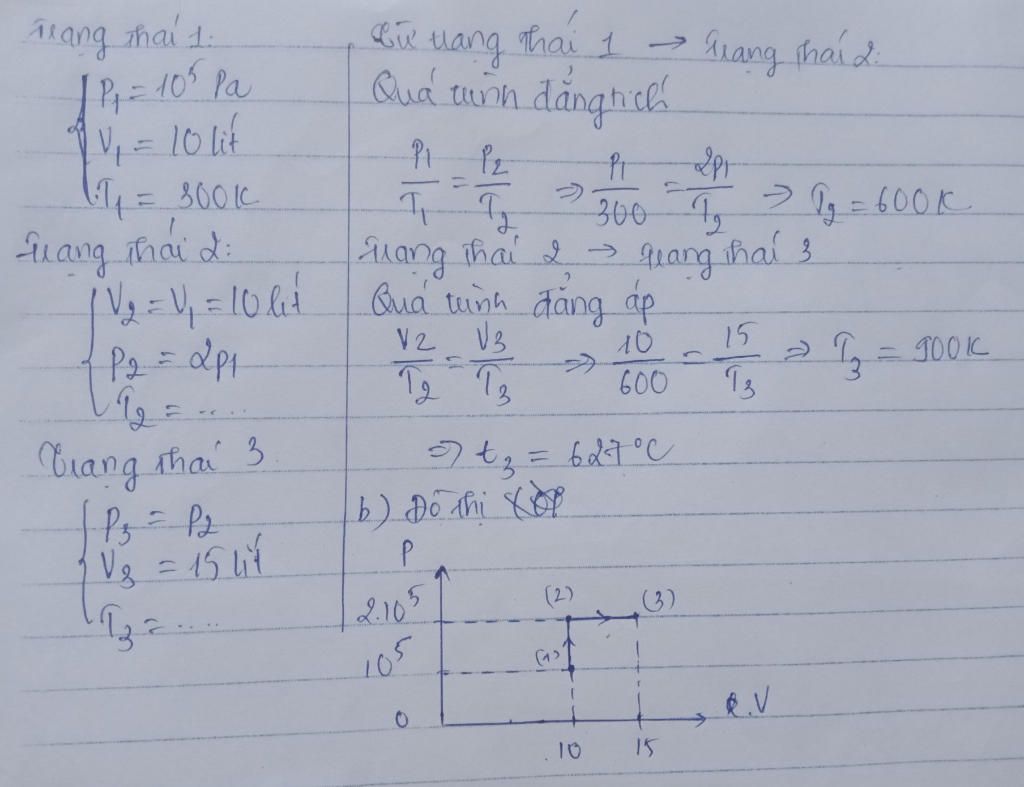 Trạng thái 1:
P₁ = 10⁵ Pa
V₁ = 10 lít
T₁ = 300K
Trạng thái 2:
V₂ = V₁ = 10 lít
P₂ = 2p₁
T₂ = .....
Trạng thái 3
P₃ = P₂
V₃ = 15 lít
T₃ = .....
Từ trạng thái 1 → trạng thái 2:
Quá trình đẳng tích
P₁/T₁ = P₂/T₂ ⇒ P₁/300 = 2p₁/T₂ ⇒ T₂ = 600K
Trạng thái 2 → trạng thái 3
Quá trình đẳng áp
V₂/T₂ = V₃/T₃ ⇒ 10/600 = 15/T₃ ⇒ T₃ = 900K
⇒ t₃ = 627°C
b) Đồ thị
P
2.10⁵ (2) (3)
10⁵ (1)
0 V
10 15